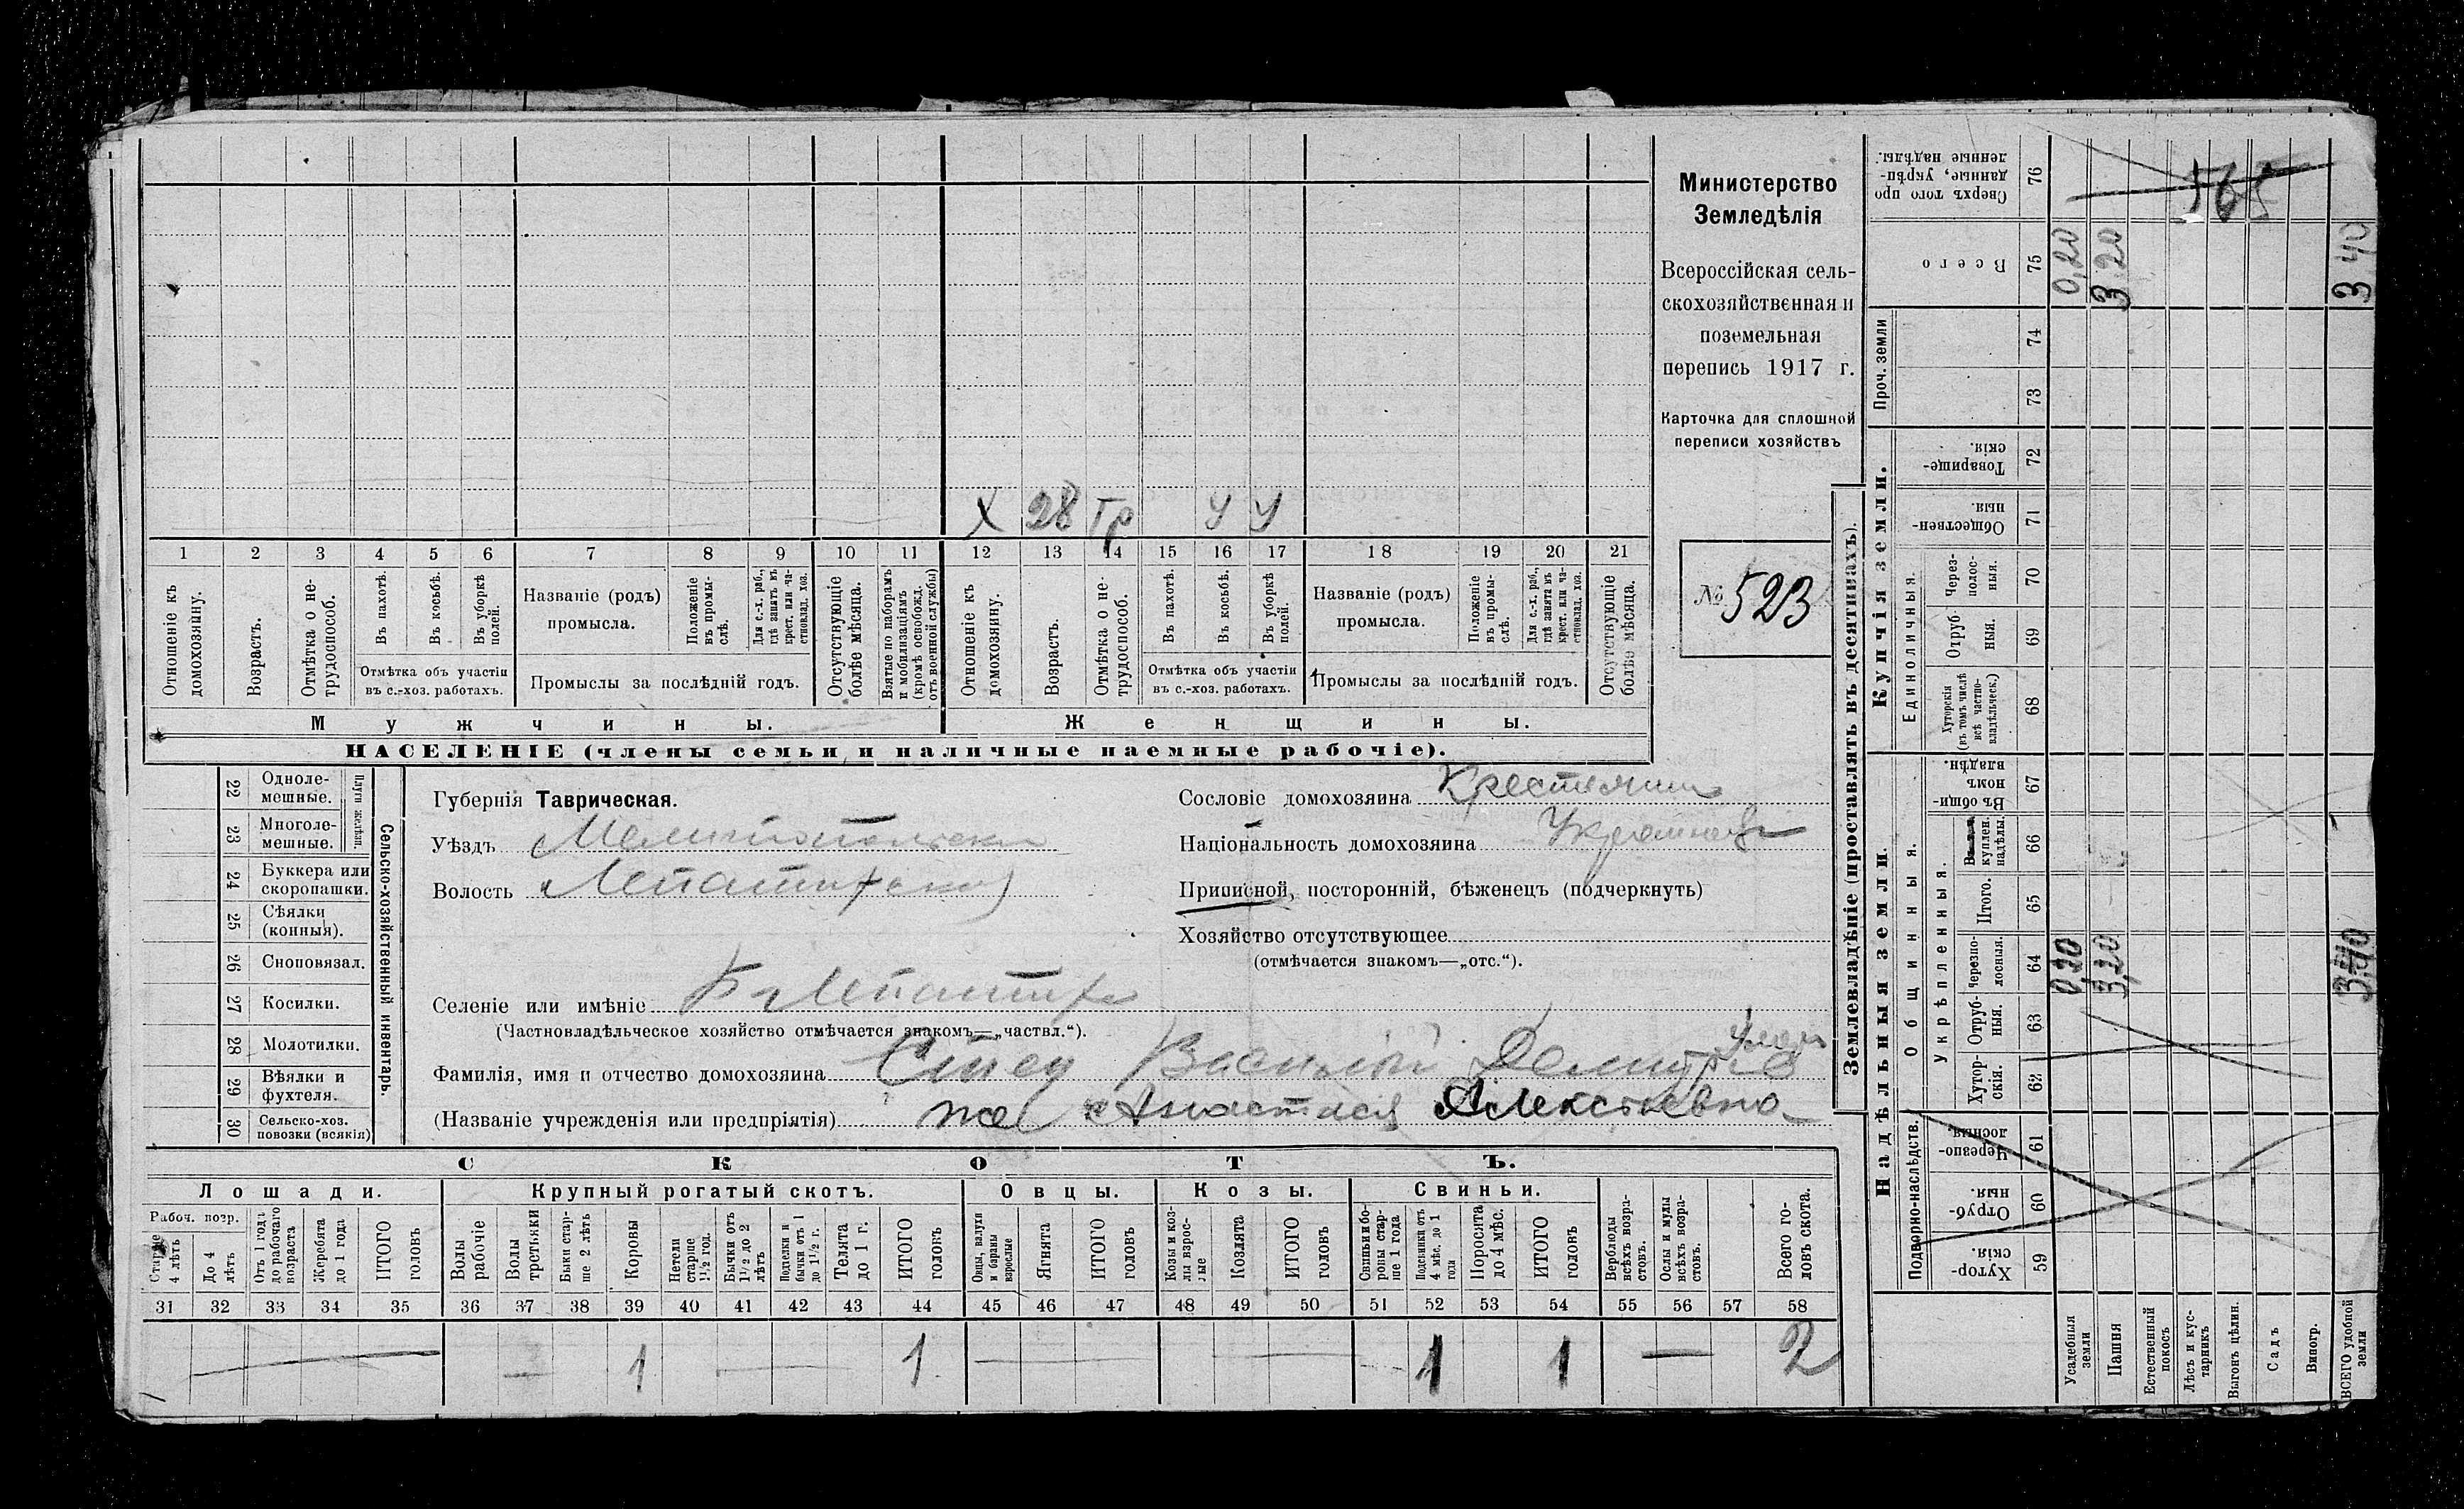 Министерство
Земледѣлія
Всероссійская сель-
скохозяйственная и
поземельная
перепись 1917 г.
Карточка для сплошной
переписи хозяйствъ
№ 523
Х 28 Гр У У
1 2 3 4 5 6 7 8 9 10 11 12 13 14 15 16 17 18 19 20 21
Отношеніе къ домохозяину.
Возрастъ.
Отмѣтка о не-трудоспособ.
Въ пахотѣ.
Въ косьбѣ.
Въ уборкѣ полей.
Отмѣтка объ участіи
въ с.-хоз. работахъ.
Названіе (родъ)
промысла.
Положеніе въ промы-слѣ.
Для с.-х. раб., гдѣ занятъ въ крест. или ча-стновлад. хоз.
Промыслы за послѣдній годъ.
Отсутствующіе болѣе мѣсяца.
Взятые по наборамъ и мобилизаціямъ (кромѣ освобожд. отъ военной службы)
Отношеніе къ домохозяину.
Возрастъ.
Отмѣтка о не-трудоспособ.
Въ пахотѣ.
Въ косьбѣ.
Въ уборкѣ полей.
Отмѣтка объ участіи
въ с.-хоз. работахъ.
Названіе (родъ)
промысла.
Положеніе въ промы-слѣ.
Для с.-х. раб., гдѣ занята въ крест. или ча-стновлад. хоз.
Промыслы за послѣдній годъ.
Отсутствующіе болѣе мѣсяца.
Мужчины. Женщины.
НАСЕЛЕНІЕ (члены семьи и наличные наемные рабочіе).
Сельско-хозяйственный инвентарь.
Плуги желѣзн.
22 Одноле-мешные.
23 Многоле-мешные.
24 Буккера или скоропашки.
25 Сѣялки (конныя).
26 Сноповязал.
27 Косилки.
28 Молотилки.
29 Вѣялки и фухтеля.
30 Сельско-хоз. повозки (всякія)
Губернія Таврическая.
Уѣздъ Мелитопольски
Волость
Селеніе или имѣніе
(Частновладѣльческое хозяйство отмѣчается знакомъ—„частвл.“).
Фамилія, имя и отчество домохозяина Василій
(Названіе учрежденія или предпріятія) Анастасія Алексѣевна
Сословіе домохозяина Крестянин
Національность домохозяина Украинец
Приписной, посторонній, бѣженецъ (подчеркнуть)
Хозяйство отсутствующее
(отмѣчается знакомъ—„отс.“).
СКОТЪ.
Лошади. Крупный рогатый скотъ. Овцы. Козы. Свиньи.
Рабоч. возр.
Старше 4 лѣтъ
До 4 лѣтъ
Отъ 1 года до рабочаго возраста
Жеребята до 1 года
ИТОГО головъ
Волы рабочіе
Волы третьяки
Быки стар-ше 2 лѣтъ
Коровы
Нетели старше 1½ год.
Бычки отъ 1½ до 2 лѣтъ
Подтелки и бычки отъ 1 до 1½ г.
Телята до 1 г.
ИТОГО головъ
Овцы, валухи и бараны взрослые
Ягнята
ИТОГО головъ
Козы и коз-лы взрос-лые
Козлята
ИТОГО головъ
Свиньи и бо-ровы стар-ше 1 года
Подсвинки отъ 4 мѣс. до 1 года
Поросята до 4 мѣс.
ИТОГО головъ
Верблюды всѣхъ возра-стовъ.
Ослы и мулы всѣхъ возра-стовъ.
Всего го-ловъ скота.
31 32 33 34 35 36 37 38 39 40 41 42 43 44 45 46 47 48 49 50 51 52 53 54 55 56 57 58
1 1 1 1 2
Землевладѣніе (проставлять въ десятинахъ).
Купчія земли.
Надѣльныя земли.
Сверхъ того про данные, укрѣп-ленные надѣлы. 76
565
Всего 75
0,20 3,20 3 40
Проч. земли 74 73
Товарище-скія. 72
Обществен-ныя. 71
Единоличныя.
Через-полос-ныя. 70
Отруб-ныя. 69
Хуторскія (въ томъ числѣ всѣ частно-владѣльческ.) 68
Общинныя.
Въ общи-номъ владѣн. 67
Укрѣпленныя.
куплен. надѣлы. 66
Итого. 65
Черезпо-лосныя. 64
0,20 3,20 3,40
Отруб-ныя. 63
Хутор-скія. 62
Подворно-наслѣдств.
Черезпо-лосныя. 61
Отруб-ныя. 60
Хутор-скія. 59
Усадебныя земли
Пашня
Естественный покосъ
Лѣсъ и кус-тарникъ
Выгонъ цѣлин.
Садъ
Виногр.
ВСЕГО удобной земли